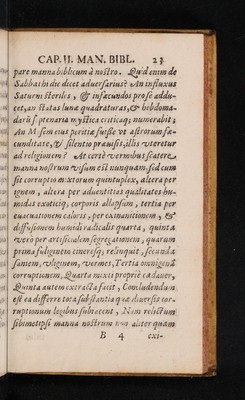 CAP. II. MAN. BIBL. 23
pare manna biblicum à nostro. Quid enim de
Sabbathi die dicet adversarius? An influxus
Saturni steriles, & infœcundos pro se addu-
cet, an statas lunæ quadraturas, & hebdoma-
darũ septenaria mystica criticaq; numerabit;
An Mosem eius peritiæ fuisse vt astrorum fæ-
cunditate, & silentio prævisis, illis vteretur
ad religionem? At certè vermibus scatere
manna nostrum visum est nunquam. sed cum
sit corruptio mixtorum quintuplex, altera per
ignem, altera per aduentitiæ qualitates hu-
midas exoticiq; corporis allapsum, tertia per
euacuationem caloris, per exinanitionem, &
diffusionem humidi radicalis quarta, quinta
verò per artificialem segregationem, quarum
prima fuliginem cineresq; relinquit, secunda
saniem, vliginem, vermes, Tertia omnigenã
corruptionem, Quarta mixti propriè cadauer,
Quinta autem extracta facit, Concludendum
est ea differre tota substantia quæ diuersis cor-
ruptionum legibus subiacent, Nam relictum
sibimetipsi manna nostrum non aliter quam
B 4 exi-